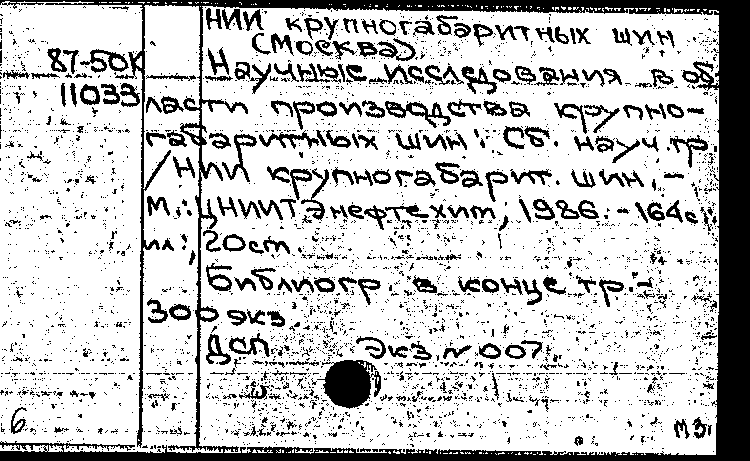 НИИ крупногабаритных шин
(Москва)
87-50К
Научные исследования в об
11033
ласти производства крупно-
габаритных шин: Сб. науч.тр.
/НИИ крупногабарит. шин. -
М.: ЦНИИТЭнефтехим, 1986. - 164с.:
ил:, 20ст.
Библиогр. в конце тр. -
300 экз
ДСП. Экз № 007.
6
МЗ